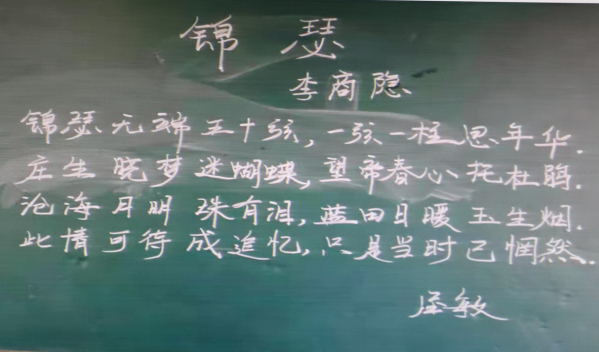 锦瑟
李商隐
锦瑟无端五十弦，一弦一柱思年华.
庄生晓梦迷蝴蝶，望帝春心托杜鹃.
沧海月明珠有泪，蓝田日暖玉生烟.
此情可待成追忆，只是当时已惘然.
敏